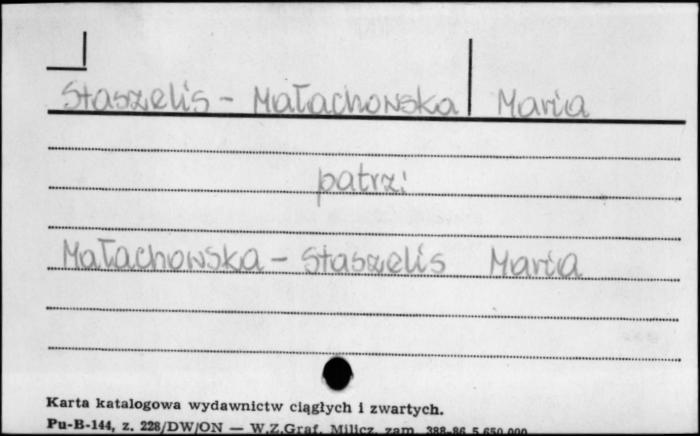 Staszelis - Małachowska Maria
patrz:
Małachowska - Staszelis Maria
Karta katalogowa wydawnictw ciągłych i zwartych.
Pu-B-144, z. 228/DW/ON — W.Z.Graf. Milicz, zam. 388-86 5.650.000